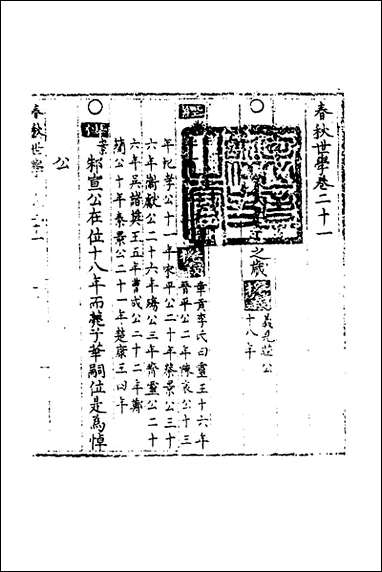 春秋世學卷二十一
之歲
義見莊公
十八年
章貢李氏曰靈王十六年
晉平公二年陳哀公十三
年杞孝公十一年宋平公二十年蔡景公三十
六年衛獻公二十六年殤公三年齊靈公二十
六年吳諸樊王五年曹成公二十二年鄭
簡公十年秦景公二十一年楚康王四年
邾宣公在位十八年而薨子華嗣位是為悼
公
春秋世學